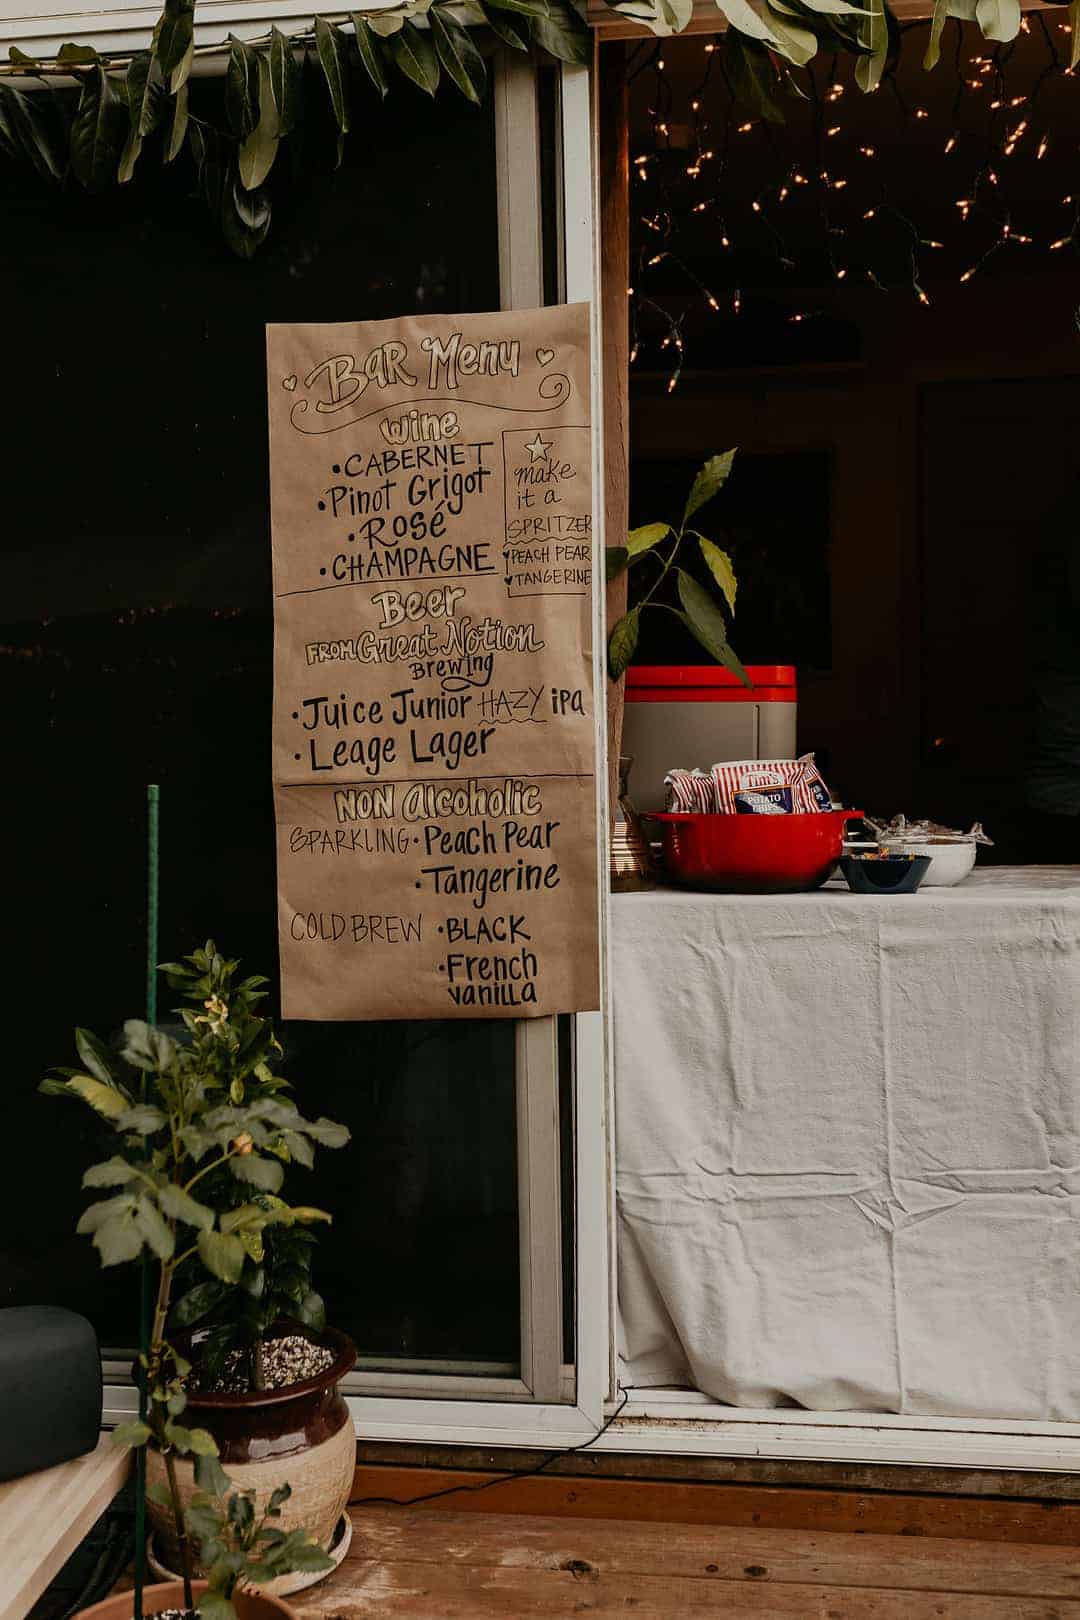 Bar Menu
Wine
• CABERNET
• Pinot Grigot
• Rosé
• CHAMPAGNE
make
it a
SPRITZER
PEACH PEAR
TANGERINE
Beer
FROM Great Notion
Brewing
• Juice Junior HAZY iPa
• Leage Lager
NON Alcoholic
SPARKLING • Peach Pear
• Tangerine
COLD BREW • BLACK
• French
vanilla
Tim's
POTATO
CHIPS